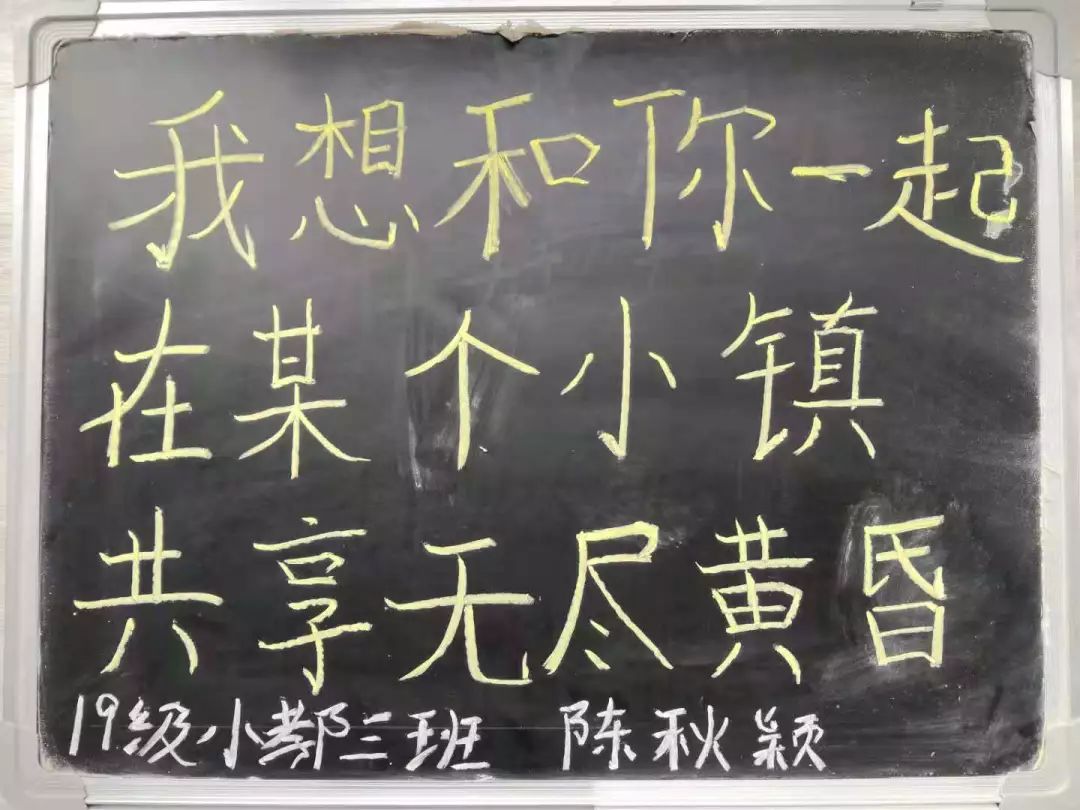 我想和你一起
在某个小镇
共享无尽黄昏
19级小教三班 陈秋颖